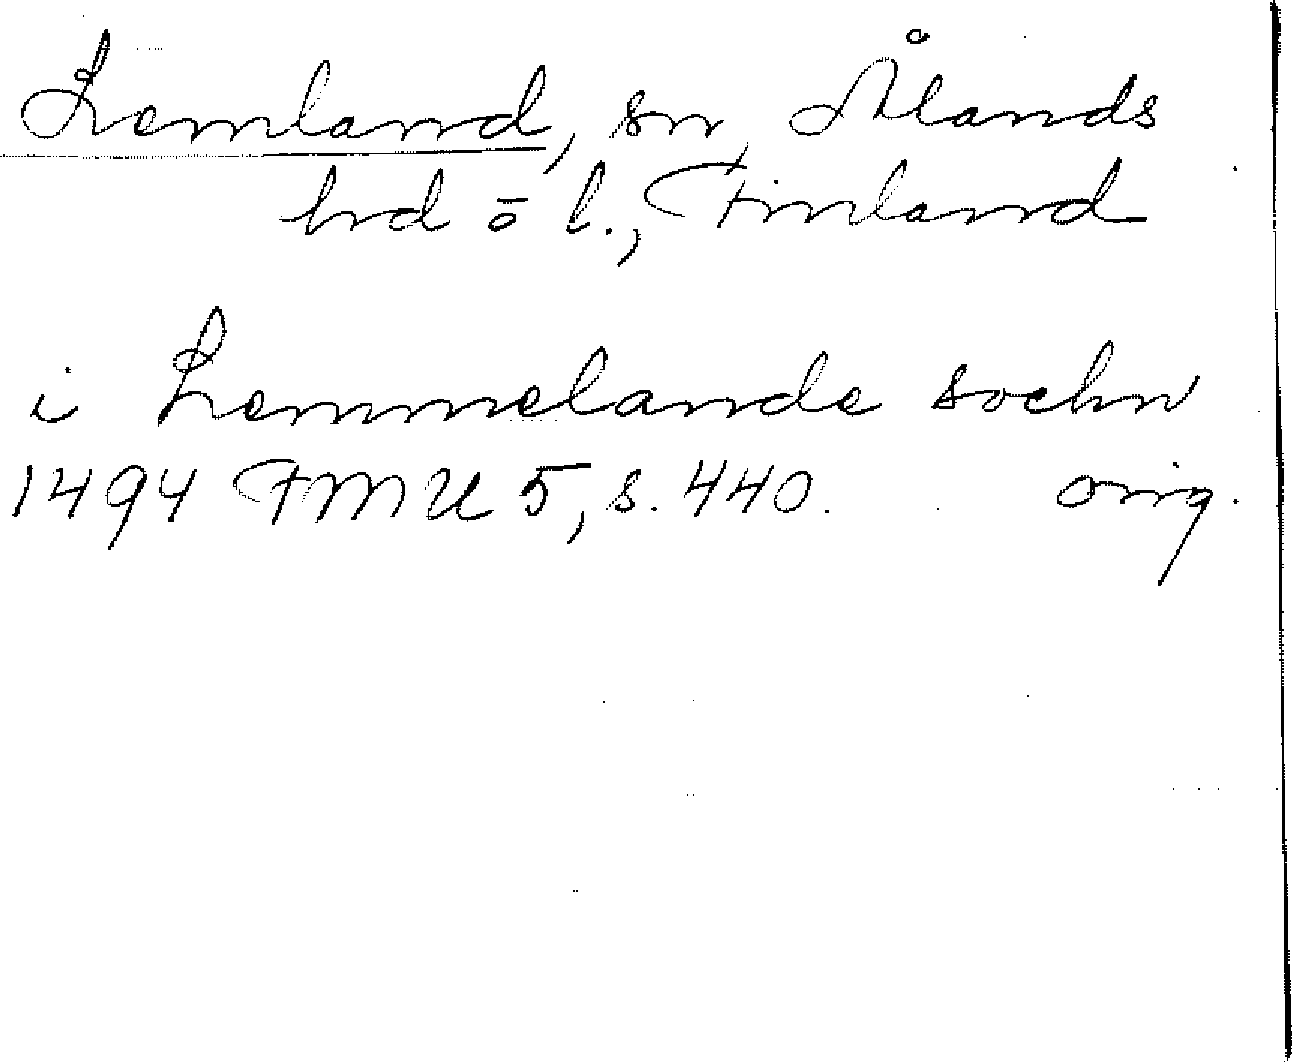 Lemland, sn, Ålands
hd o l., Finland
i Lemmelande sochn
1494 FMU 5, s. 440. orig.